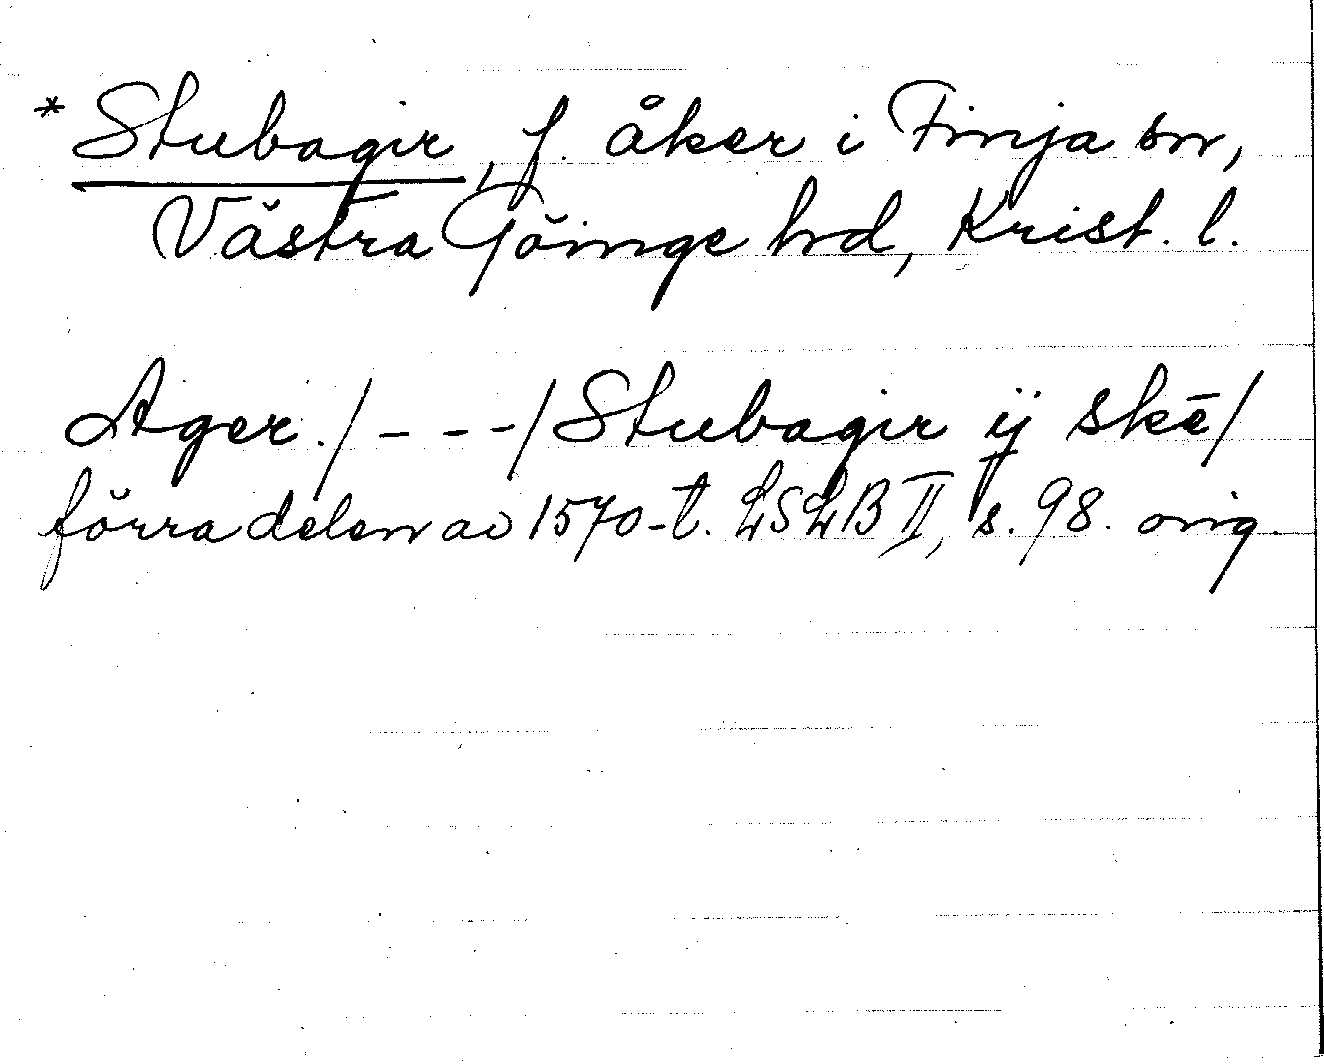 * Stubagir, f. åker i Finja sn,
Västra Göinge hd, Krist. l.
Ager. /---/ Stubagir ij skē/
förra delen av 1570-t. LSLB II, s. 98. orig.